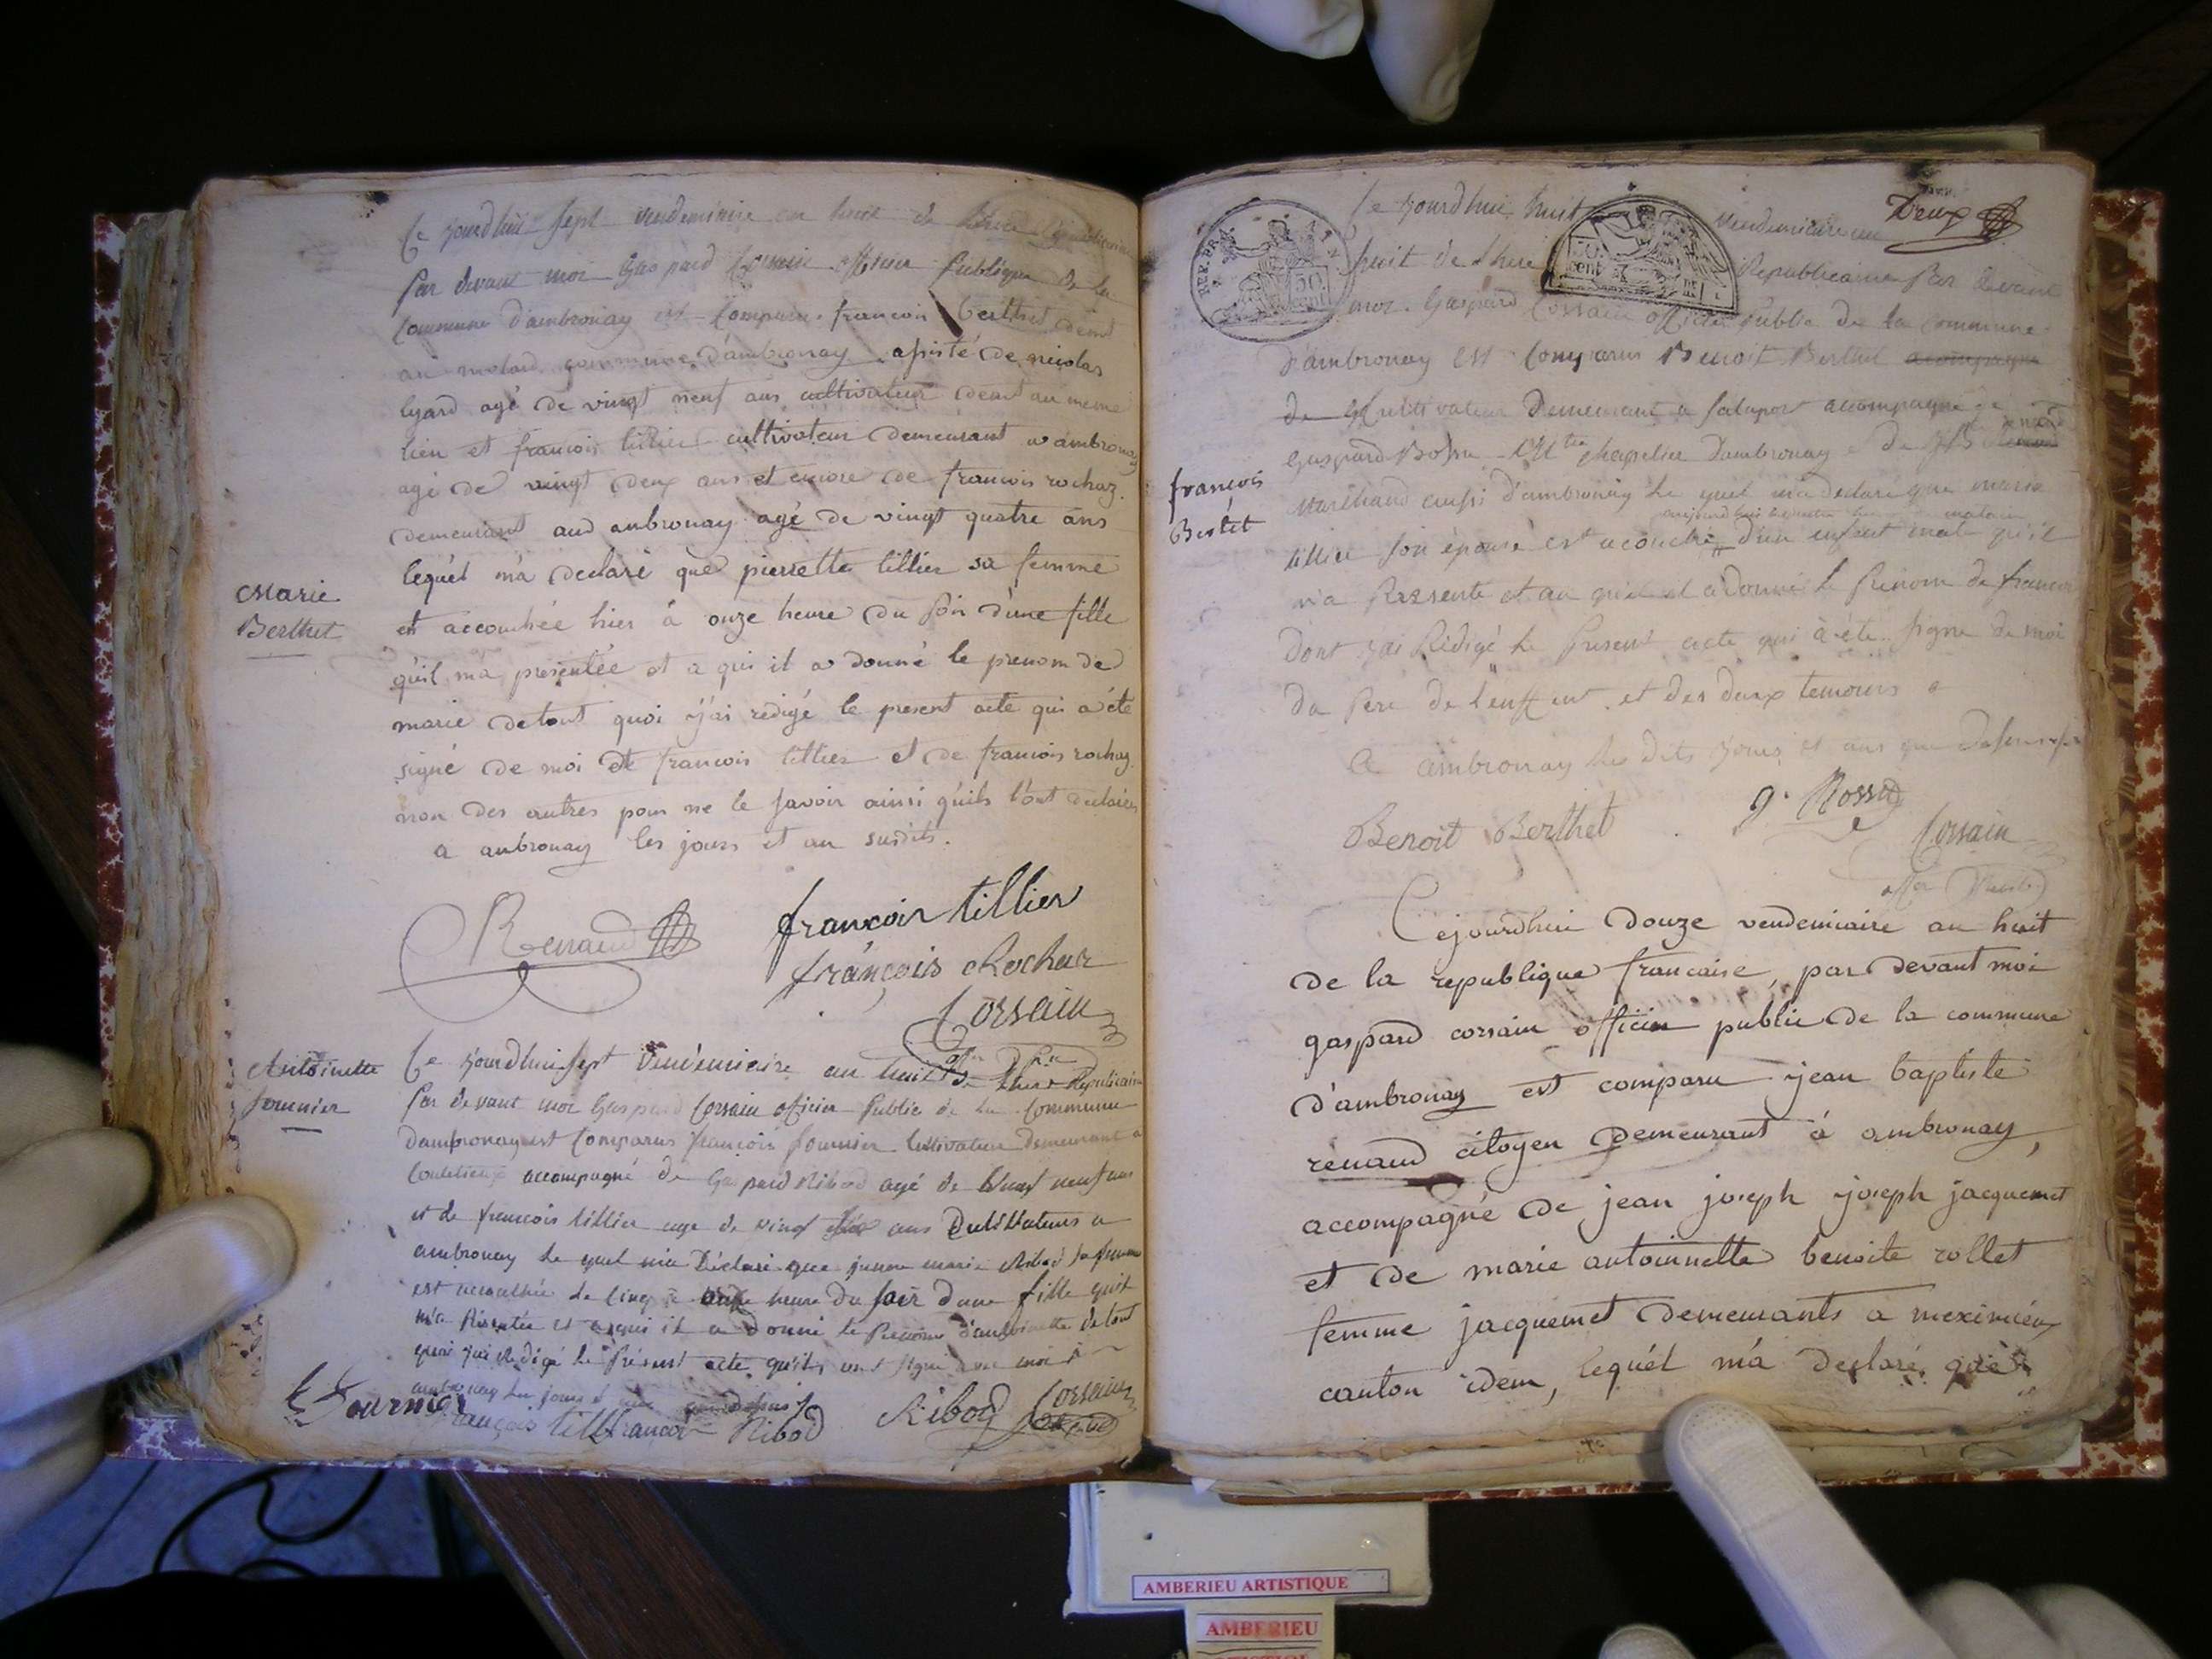 Ce jourdhui sept vendemiaire an huit de
Par devant moi Gaspard Corsain officier Publique de la
Commune d'ambronay est Comparu francois Berthet demt
au molard commune d'ambronay assisté de nicolas
agé de vingt neuf ans cultivateur demt au meme
lieu et francois tillier cultivateur demeurant a ambronay
agé de vingt deux ans et encore de francois rochaz
demeurant aud ambronay agé de vingt quatre ans
lequél m'a declaré que pierrette tillier sa femme
est accouchée hier à onze heure du soir d'une fille
qu'il m'a presentée et a qui il a donné le prenom de
marie detout quoi j'ai redigé le present acte qui a été
signé de moi de francois tillier et de francois rochaz
non des autres pour ne le savoir ainsi qu'ils l'ont declarés
a ambronay les jours et an susdits.
Marie
Berthet
Renaud
françois tillier
françois Rochaz
Corsain
Antoinette
fournier
Ce jourdhui sept Vendémiaire an huit de Republicaine
Par devant moi Gaspard Corsain oficier Public de la Commune
Dambronay est Comparus françois fournier Cultivateur demeurant a
accompagné de Gaspard Ribod agé de neuf ans
et de francois tillier age de vingt ans Cultivateurs a
ambronay le quel m'a Déclaré que marie Ribod sa femme
est accouchée de Cinq a heure du soir d'une fille quil
m'a Présentée et a qui il a donné le Prenom d'antoinette de tout
quoi j'ai Redigé le Présent acte qu'ils ont signé avec moi à
ambronay les jours et an que dessus
fournier
françois till francois Ribod Ribod Corsain
Deux
REP. FRA.
50 cent
Ce jourdhui huit vendemiaire an
huit de Republicaine Par devant
moi Gaspard Corsain officier public de la Commune
D'ambronay est Comparus Benoit Berthet
de Cultivateur Demeurant a Salaport accompagné de
Gaspard Bossu Mtre chapelier Dambronay et de
Marchand aussi d'ambronay le quel m'a declaré que marie
aujourd'hui matin
tillier son épouse est acouché d'un enfant male qu'il
m'a Présenté et au quel il a donné le Prénom de francois
Dont j'ai Rédigé le Present acte qui a été signé de moi
du Pere de l'enfant et des deux temoins
A ambronay les dits jours et ans que dessus
françois
Bertet
Benoit Berthet
Corsain
Cejourdhui douze vendemiaire an huit
de la republique francaise, par devant moi
gaspard corsain officier public de la commune
d'ambronay est comparu jean baptiste
renaud citoyen demeurant à ambronay,
accompagné de jean joseph joseph jacquemet
et de marie antoinnette benoite rollet
femme jacquemet demeurants a meximieux
canton idem, lequél m'a declaré que
AMBERIEU ARTISTIQUE
AMBERIEU